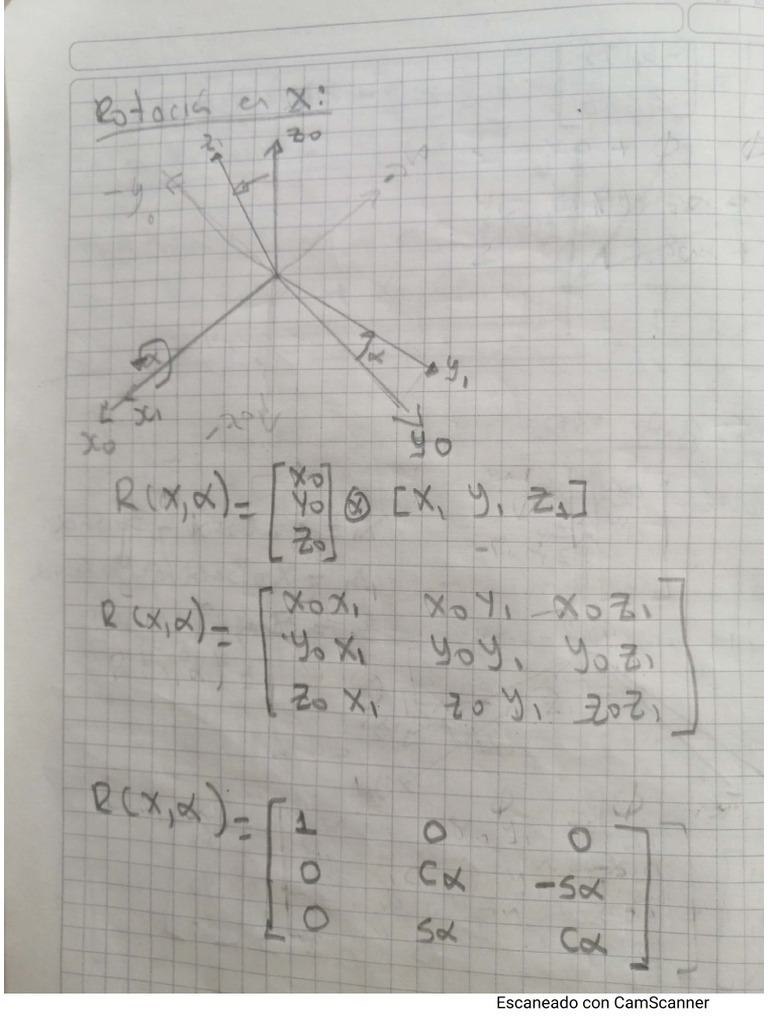 Rotación en X:
z1 z0
-y0
α
α y1
x1
x0 y0
R(X,α)= [x0 y0 z0] ⊗ [x1 y1 z1]
R(x,α)= [x0x1 x0y1 x0z1
y0x1 y0y1 y0z1
z0x1 z0y1 z0z1]
R(x,α)= [1 0 0
0 Cα -Sα
0 Sα Cα]
Escaneado con CamScanner